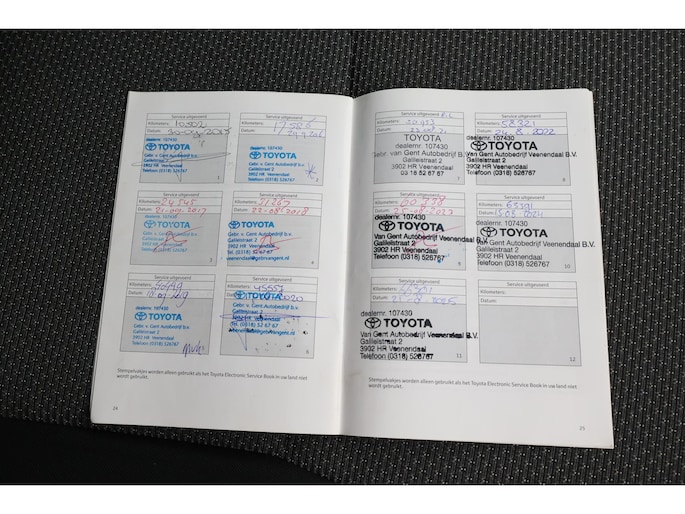 Service uitgevoerd
Kilometers: 10502
Datum: 30-09-2015
dealernr. 107430
TOYOTA
Gebr. v. Gent Autobedrijf b.v.
Galileistraat 2
3902 HR Veenendaal
Telefoon (0318) 526767
Service uitgevoerd
Kilometers:
Datum:
dealernr. 107430
TOYOTA
Gebr. v. Gent Autobedrijf b.v.
Galileistraat 2
3902 HR Veenendaal
Telefoon (0318) 526767
Service uitgevoerd
Kilometers: 24545
Datum: 21-09-2017
dealernr. 107430
TOYOTA
Gebr. v. Gent Autobedrijf b.v.
Galileistraat 2
3902 HR Veenendaal
Telefoon (0318) 526767
3
Service uitgevoerd
Kilometers: 31267
Datum: 22-08-2018
TOYOTA
Gebr. v. Gent Autobedrijf b.v.
Galileistraat 2
3902 HR Veenendaal
Tel. (0318) 52 67 67
veenendaal@gebrvangent.nl
4
Service uitgevoerd
Kilometers:
Datum:
dealernr. 107430
TOYOTA
Gebr. v. Gent Autobedrijf b.v.
Galileistraat 2
3902 HR Veenendaal
Telefoon (0318) 526767
5
Service uitgevoerd
Kilometers: 45557
Datum: 2020
TOYOTA
Gebr. v. Gent Autobedrijf b.v.
Galileistraat 2
3902 HR Veenendaal
Tel. (0318) 52 67 67
6
Stempelvakjes worden alleen gebruikt als het Toyota Electronic Service Book in uw land niet
wordt gebruikt.
24
Service uitgevoerd
Kilometers:
Datum:
TOYOTA
dealernr. 107430
Gebr. van Gent Autobedrijf Veenendaal B.V.
Galileistraat 2
3902 HR Veenendaal
03 18 52 67 67
7
Service uitgevoerd
Kilometers: 58321
Datum: 24-8-2022
dealernr. 107430
TOYOTA
Van Gent Autobedrijf Veenendaal B.V.
Galileistraat 2
3902 HR Veenendaal
Telefoon (0318) 526767
Service uitgevoerd
Kilometers:
Datum: 25-08-2023
dealernr. 107430
TOYOTA
Van Gent Autobedrijf Veenendaal B.V.
Galileistraat 2
3902 HR Veenendaal
Telefoon (0318) 526767
9
Service uitgevoerd
Kilometers: 63391
Datum: 2024
dealernr. 107430
TOYOTA
Van Gent Autobedrijf Veenendaal B.V.
Galileistraat 2
3902 HR Veenendaal
Telefoon (0318) 526767
10
Service uitgevoerd
Kilometers:
Datum: 2025
dealernr. 107430
TOYOTA
Van Gent Autobedrijf Veenendaal B.V.
Galileistraat 2
3902 HR Veenendaal
Telefoon (0318) 526767
11
Service uitgevoerd
Kilometers:
Datum:
12
Stempelvakjes worden alleen gebruikt als het Toyota Electronic Service Book in uw land niet
wordt gebruikt.
25